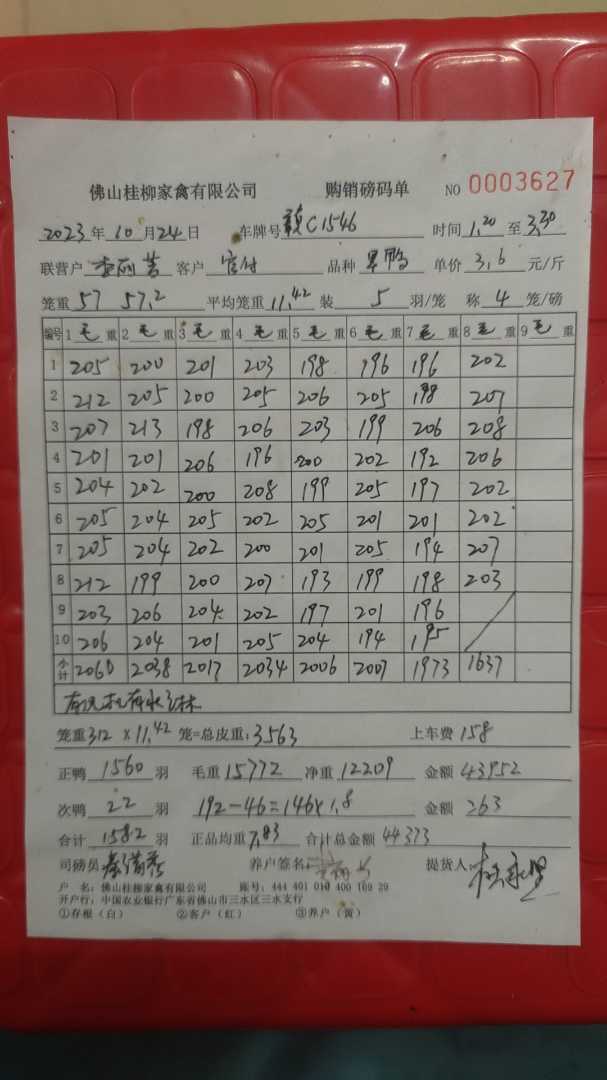 佛山桂柳家禽有限公司 购销磅码单 NO 0003627
2023年10月24日 车牌号 赣C1546 时间1.20至3.30
联营户 李丽芳 客户 官付 品种 旱鸭 单价 3.6 元/斤
笼重 57 57.2 平均笼重 11.42 装 5 羽/笼 称 4 笼/磅
编号 1 毛 重 2 毛 重 3 毛 重 4 毛 重 5 毛 重 6 毛 重 7 毛 重 8 毛 重 9 毛 重
1 205 200 201 203 198 196 196 202
2 212 205 200 205 206 205 198 207
3 207 213 198 206 203 199 206 208
4 201 201 206 196 200 202 192 206
5 204 202 200 208 199 205 197 202
6 205 204 205 202 205 201 201 202
7 205 204 202 200 201 205 194 207
8 212 199 200 207 193 199 198 203
9 203 206 204 202 197 201 196
10 206 204 201 205 204 194 195
小计 2060 2038 2017 2034 2006 2007 1973 1637
笼重 312 X 11.42 笼=总皮重: 3563 上车费 158
正鸭 1560 羽 毛重 15772 净重 12209 金额 43952
次鸭 22 羽 192-46=146X1.8 金额 263
合计 1582 羽 正品均重 7.83 合计总金额 44373
司磅员 养户签名: 提货人
户 名: 佛山桂柳家禽有限公司 账号: 444 401 010 400 169 29
开户行: 中国农业银行广东省佛山市三水区三水支行
①存根(白) ②客户(红) ③养户(黄)